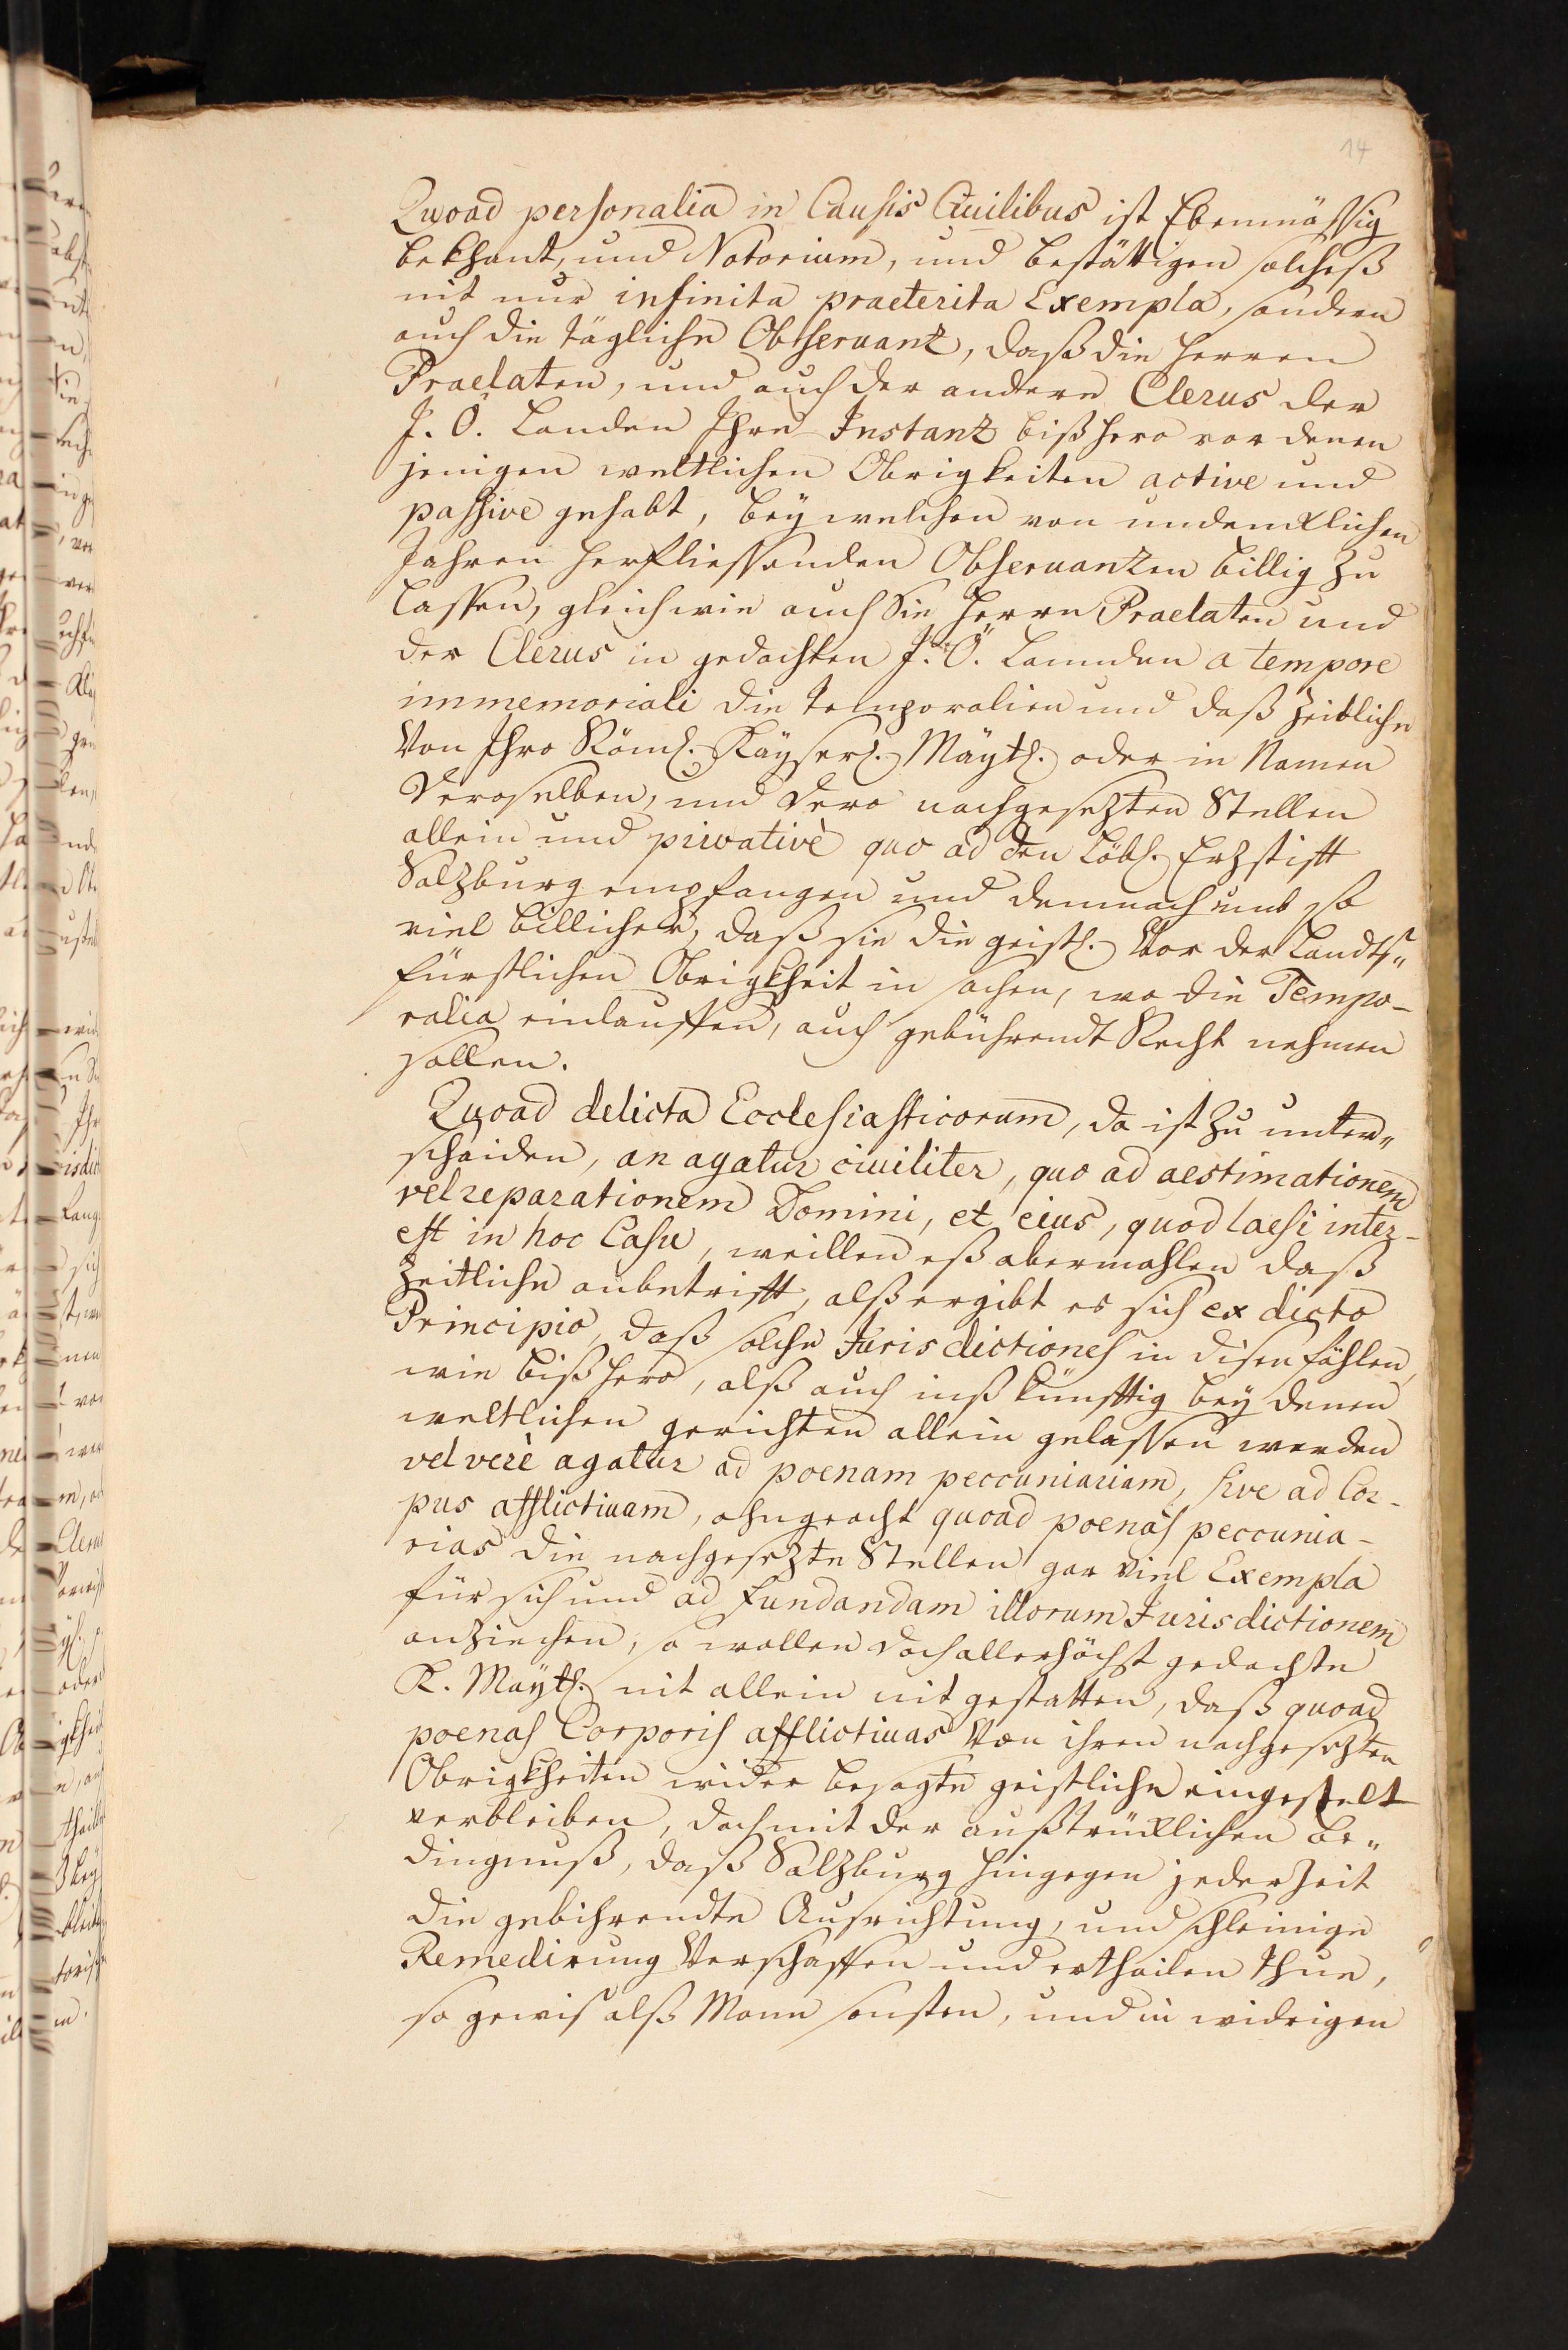 14
Quoad personalia in Causis Ciuilibus ist Ebenmässig
bekhant, und Notorium, und bestättigen solcheß
nit nur infinita praeterita Exempla, sondern
auch die tägliche Observantz, daß die Herren
Praelaten, und auch der andere Clerus der
J. Ö. Landen Ihre Instantz bißhero vor denen
jenigen weltlichen Obrigkeiten active und
passive gehabt, bey welchen von undencklichen
Jahren herfliessenden Observantzen billig zu
lassen, gleich wie auch Sie Herrn Praelaten und
der Clerus in gedachten J. Ö. Lannden a tempore
immemoriali die temporalien und daß Zeitliche
Von Ihro Röm: Kayserl: Mayt: oder in Namen
Deroselben, und dero nachgesezten Stellen
allein und privativè quo ad den Löbl: Erzstifft
Salzburg empfangen und demnach umb so
viel billicher, daß sie die geistl: Vor der Landts"
fürstlichen Obrigkheit in sachen, wo die Tempo-
ralia einlauffen, auch gebührendt Recht nehmen
sollen.
Quoad delicta Ecclesiasticorum, da ist zu unter"
scheiden, an agatur civiliter, quo ad aestimationem
vel reparationem Domini, et eius, quod laesi inter-
est in hoc Casu, weillen eß abermahlen daß
Zeitliche anbetrifft, alß ergibt es sich ex dicto
Principio, daß solche Jurisdictiones in disen fählen,
wie bißhero, alß auch inß künfftig bey denen
weltlichen gerichten allein gelassen werden
vel verè agatur ad poenam peccuniariam, sive ad Cor-
pus afflictivam, ohngeacht quoad poenas peccunia-
rias die nachgesezte Stellen gar viel Exempla
für sich und ad fundandam illorum Jurisdictionem
anziechen, so wollen doch allerhöchst gedachte
K. Mayt: nit allein nit gestatten, daß quoad
poenas Corporis afflictivas Von ihren nachgesezten
Obrigkheiten wider besagte geistliche eingestelt
verbleiben, doch mit der außtrücklichen be"
dingnuß, daß Salzburg hingegen jederzeit
die gebihrendte Ausrichtung, und schleinige
Remedirung Verschaffen und ertheilen thue,
so gewis alß Mann sonsten, und in widrigen